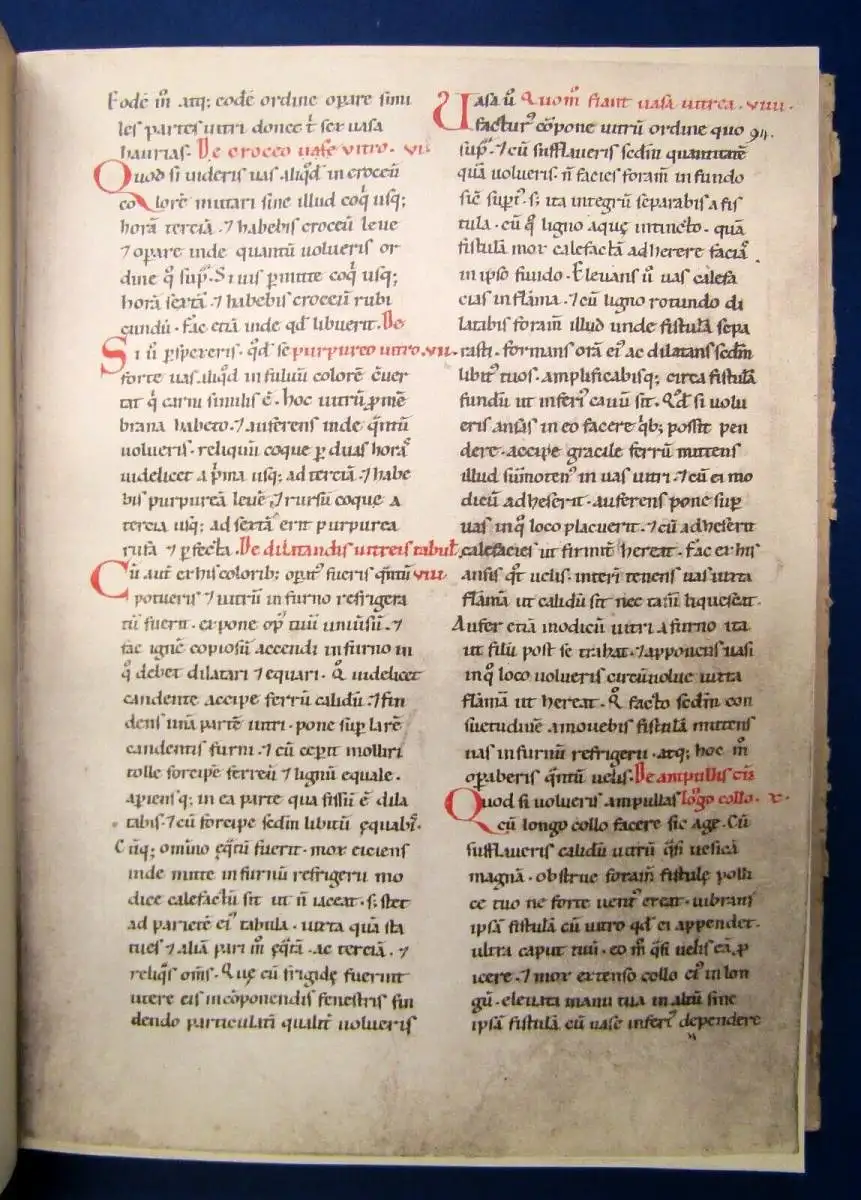 Eodē m̄ atq; eodē ordine op̲are simi
les partes uitri donec t̄ sex uasa
haurias. De croceo uase vitro. vi.
Quod si uideris uas aliq̇d in croceū
colorē mutari sine illud coq̇ usq;
horā terciā ⁊ habebis croceū leue
⁊ op̲are inde quantū uolueris or
dine q̊ sup̲. Si uis p̲mitte coq̇ usq;
horā sextā ⁊ habebis croceū rubi
cundū. Fac etiā inde qd̄ libuerit. De
Si ū p̲spexeris qd̄ se purpureo uitro. vii.
forte uas aliq̇d in fuluū colorē c̄uer
tat q̇ carni similis ē. hoc uitrū p̲ mē
brana habeto. ⁊ auferens inde q̄ntū
uolueris. reliquū coque p̲ duas horas
uidelicet a ṗma usq; ad terciā ⁊ habe
bis purpureā leuē. ⁊ rursū coque a
tercia usq; ad sextā erit purpurea
rufa ⁊ p̲fecta. De dilatandis uitreis tabul̄.
Cū aut̄ ex his colorib; op̲at᷒ fueris q̄ntū viii.
potueris ⁊ uitrū in furno refrigera
tū fuerit. expone op᷒ tuū uniūsū. ⁊
fac ignē copiosū accendi in furno in
q̊ debet dilatari ⁊ equari. Q̊ uidelicet
candente accipe ferrū calidū. ⁊ fin
dens unā partē uitri. pone sup̲ larē
candentis furni. ⁊ cū cep̲it molliri
tolle forcipē ferreū ⁊ lignū equale.
ap̲iensq; in ea parte qua fissū ē dila
tabis. ⁊ cū forcipe scd̄m libitū ęquabis.
Cūq; omīno ęq̄tū fuerit. mox eiciens
inde mitte in furnū refrigerii mo
dice calefactū sit ut n̄ iaceat. s; stet
ad parietē ei᷒ tabula. iuxta quā sta
tues ⁊ aliā pari m̊ ęq̄tā. ac terciā. ⁊
reliq̊s om̄s. Quę cū frigidę fuerint
utere eis in cōponendis fenestris fin
dendo particulatī qualit̄ uolueris
Uasa ū Quom̊ fiant uasa uitrea. viiii.
factur᷒ cōpone uitrū ordine quo 94.
sup᷒. ⁊ cū sufflaueris scd̄m quantitatē
quā uolueris. n̄ facies foram̄ in fundo
sic̄ sup᷒. s; ita integrū separabis a fis
tula. cū q̊ ligno aquę intincto. quā
fistulā mox calefactā adherere faciās
in ipso fundo. Eleuans ū uas calefa
cias in flāma. ⁊ cū ligno rotundo di
latabis foram̄ illud unde fistulā sepa
rasti. formans orā ei᷒ ac dilatans scd̄m
libit᷒ tuos. amplificabisq; circa fistulā
fundū ut inferi᷒ cauū sit. Qd̄ si uolu
eris ansas in eo facere q̇b; possit pen
dere. accipe gracile ferrū mittens
illud sūmoten᷒ in uas uitri. ⁊ cū ei mo
dicū adheserit. auferens pone sup̲
uas in q̊ loco placuerit. ⁊ cū adheserit
calefacies ut firmit̄ hereat. Fac ex his
ansis q̊t uelis. interī tenens uas iuxta
flāmā ut calidū sit nec tam̄ liquescat.
Aufer etiā modicū uitri a furno ita
ut filū post se trahat. ⁊ apponens uasi
in q̊ loco uolueris circūuolue iuxta
flāmā ut hereat. Q̊ facto scd̄m con
suetudinē amouebis fistulā mittens
uas in furnū refrigerii. atq; hoc m̊
op̲aberis q̄ntū uelis. De ampullis cū
Quod si uolueris ampullas lōgo collo. x.
cū longo collo facere sic age. Cū
sufflaueris calidū uitrū q̄si uesicā
magnā. obstrue foram̄ fistulę polli
ce tuo ne forte uent᷒ exeat. uibrans
ipsā fistulā cū uitro qd̄ ei appendet.
ultra caput tuū. eo m̊ q̄si uelis eā p̲
icere. ⁊ mox extenso collo ei᷒ in lon
gū. eleuata manu tua in altū sine
ipsā fistulā cū uase inferi᷒ dependere